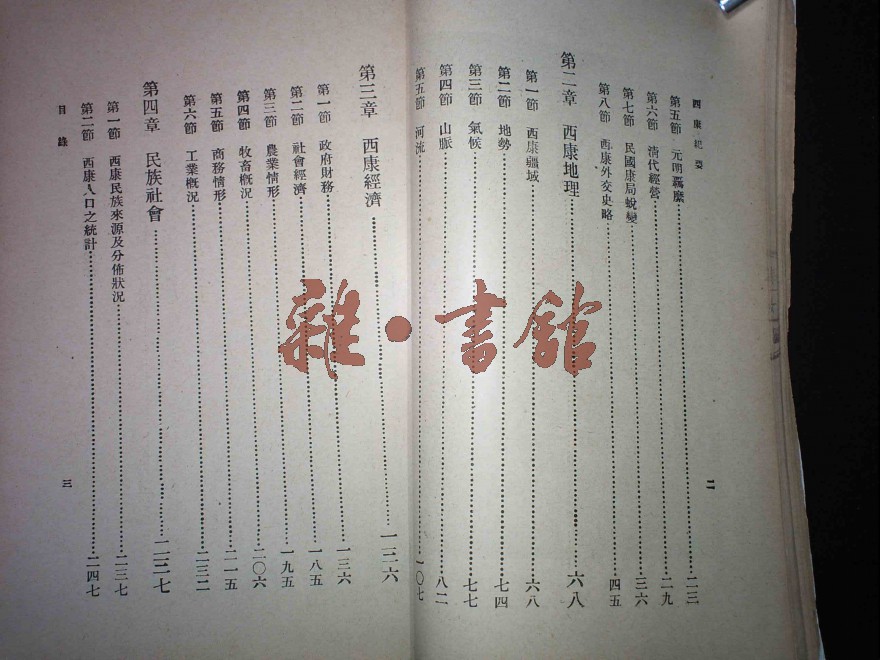 西康紀要
第五節 元明羈縻 二三
第六節 清代經營 二九
第七節 民國康局蛻變 三六
第八節 西康外交史略 四五
第二章 西康地理 六八
第一節 西康疆域 六八
第二節 地勢 七四
第三節 氣候 七七
第四節 山脈 八二
第五節 河流 一〇七
二
第三章 西康經濟 一三六
第一節 政府財務 一三六
第二節 社會經濟 一八五
第三節 農業情形 一九五
第四節 牧畜概況 二〇六
第五節 商務情形 二一五
第六節 工業概況 二三二
第四章 民族社會 二三七
第一節 西康民族來源及分佈狀況 二三七
第二節 西康人口之統計 二四七
目錄
三
雜·書館